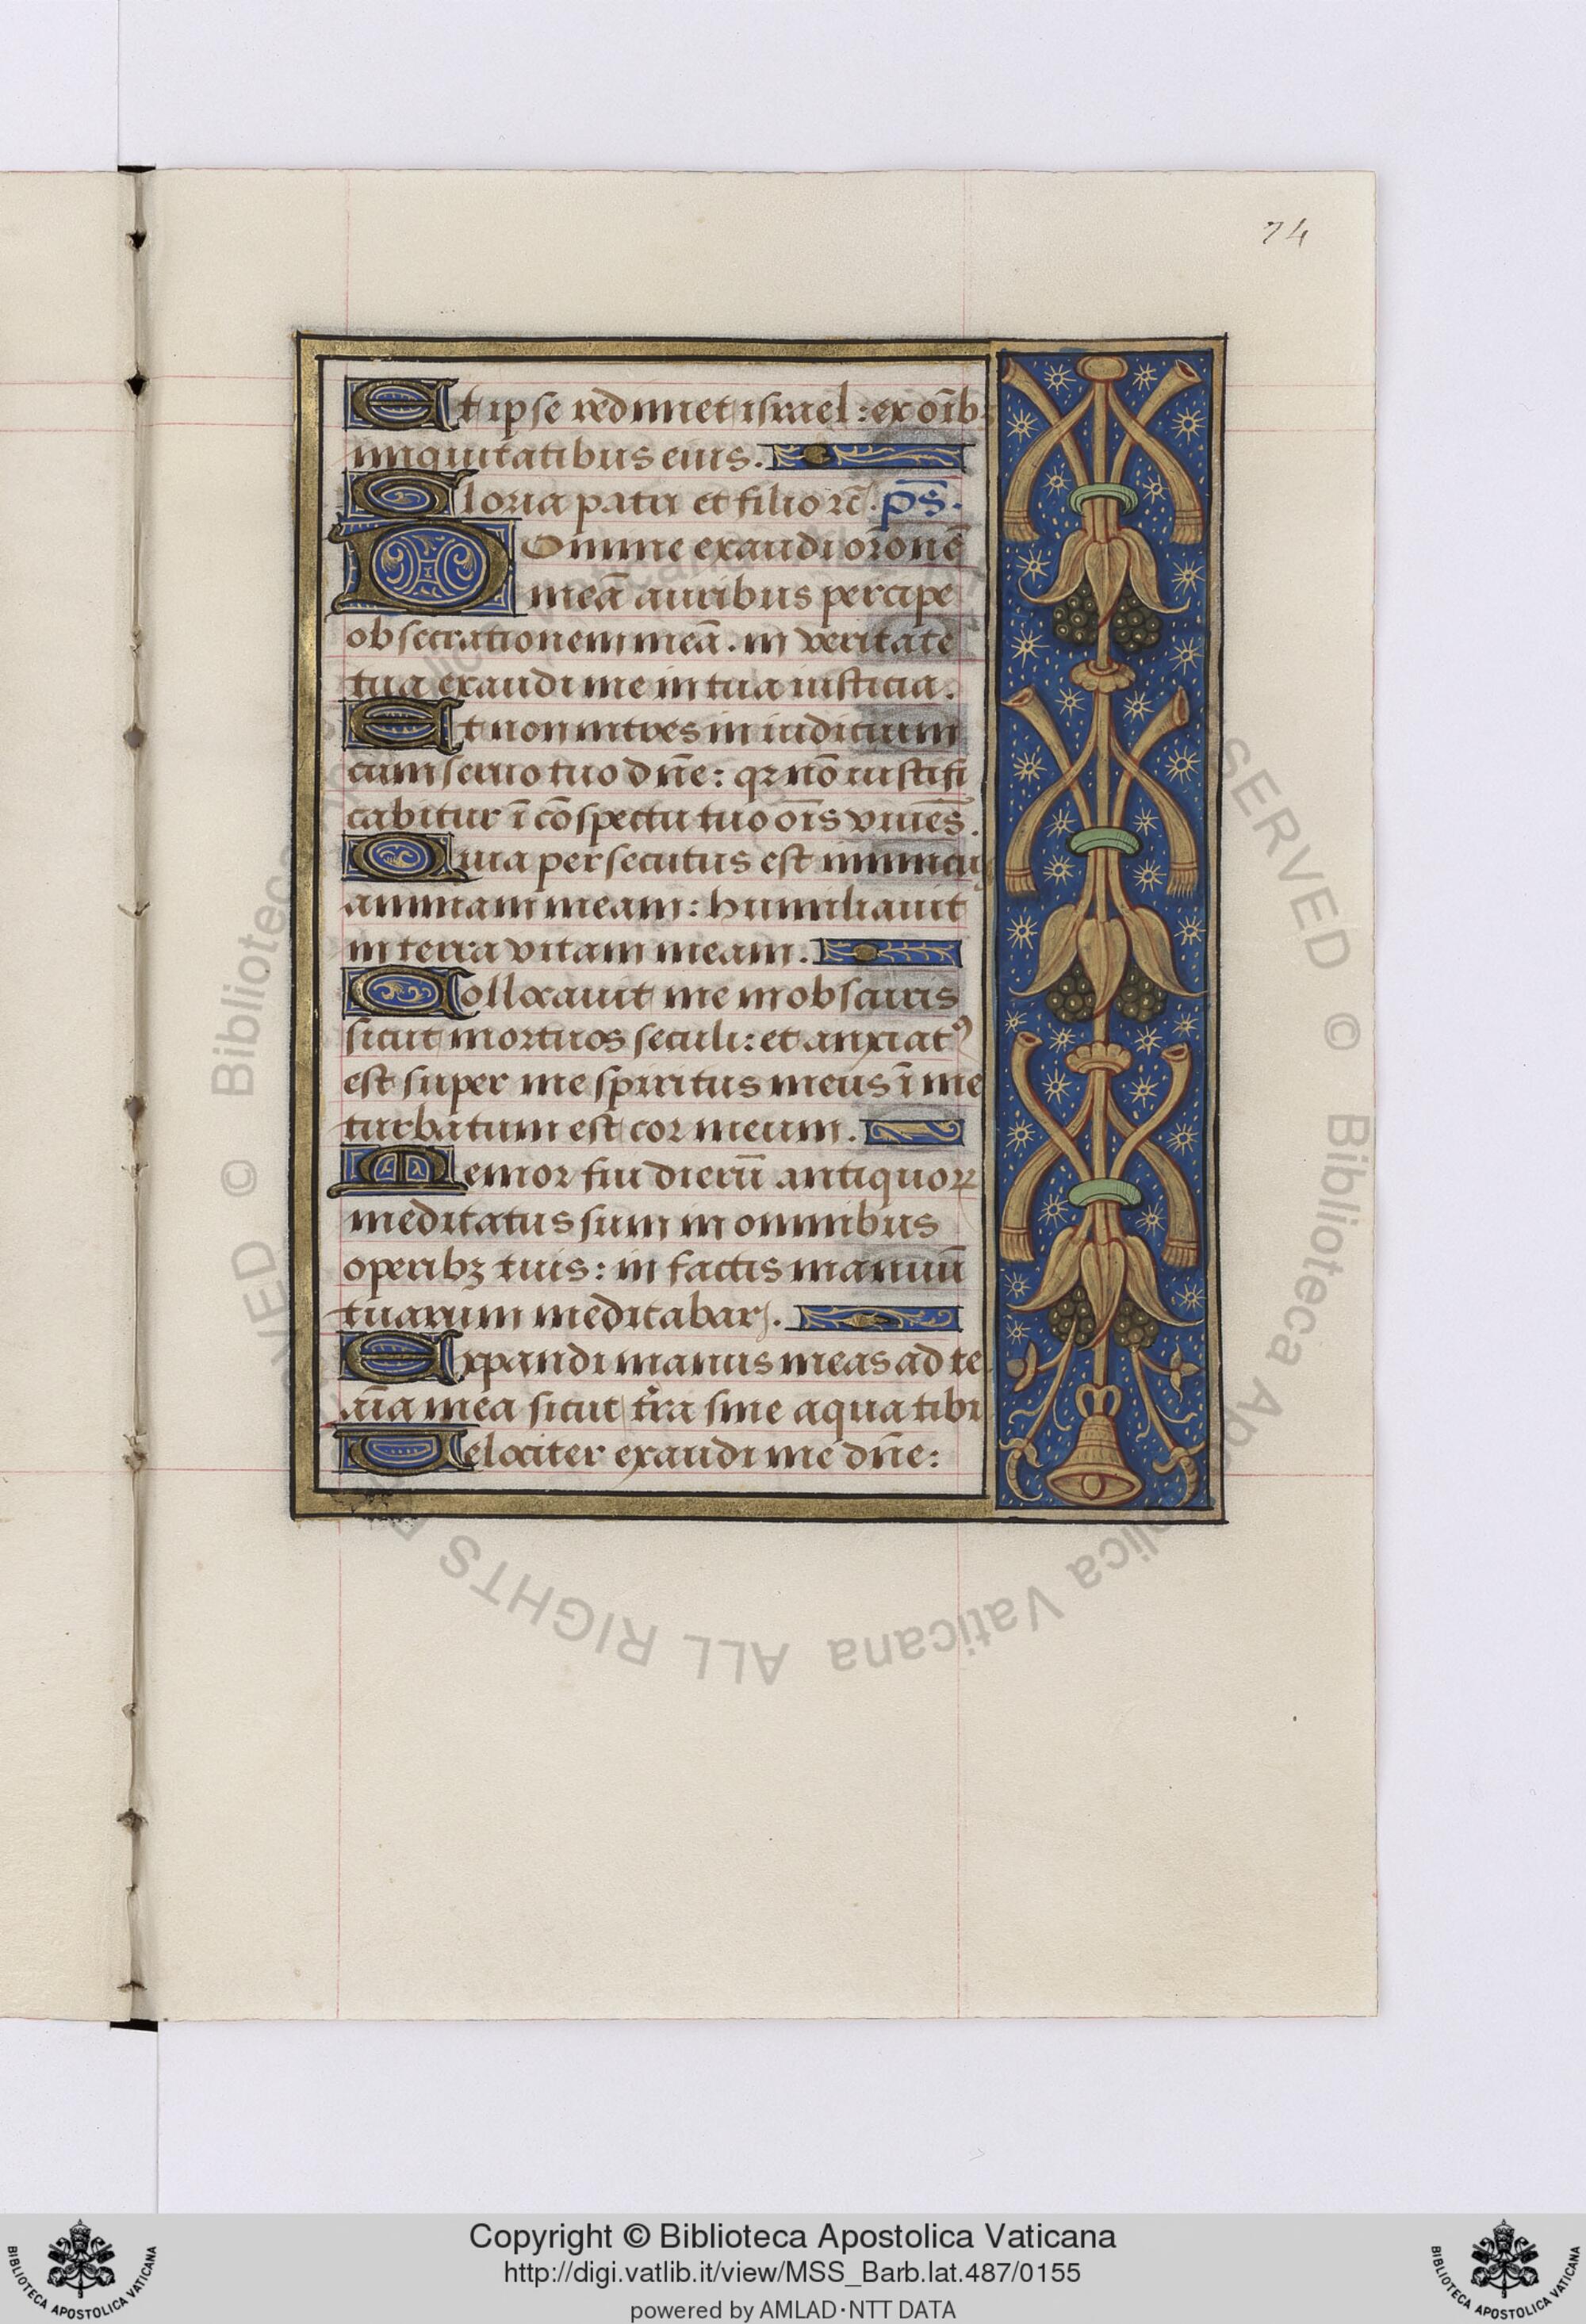 74
Et ipse redimet israel: ex oīb;
iniquitatibus eius.
Gloria patri et filio ꝛc̄. p̄s.
Domine exaudi or̄onē
meā auribus percipe
obsecrationem meā. in veritate
tua exaudi me in tua iusticia.
Et non intres in iudicium
cum seruo tuo dn̄e: qꝛ nō iustifi
cabitur ī cōspectu tuo oīs viuēs.
Quia persecutus est inimicus
animam meam: humiliauit
in terra vitam meam.
Collocauit me in obscuris
sicut mortuos seculi: et anxiatꝰ
est super me spiritus meus ī me
turbatum est cor meum.
Memor fui dierū antiquoꝝ
meditatus sum in omnibus
operibꝫ tuis: in factis manuū
tuarum meditabar.
Expandi manus meas ad te
aīa mea sicut t̄ra sine aqua tibi
Velociter exaudi me dn̄e:
© Biblioteca Apostolica Vaticana ALL RIGHTS RESERVED
Copyright © Biblioteca Apostolica Vaticana
http://digi.vatlib.it/view/MSS_Barb.lat.487/0155
powered by AMLAD·NTT DATA
BIBLIOTECA APOSTOLICA VATICANA
BIBLIOTECA APOSTOLICA VATICANA